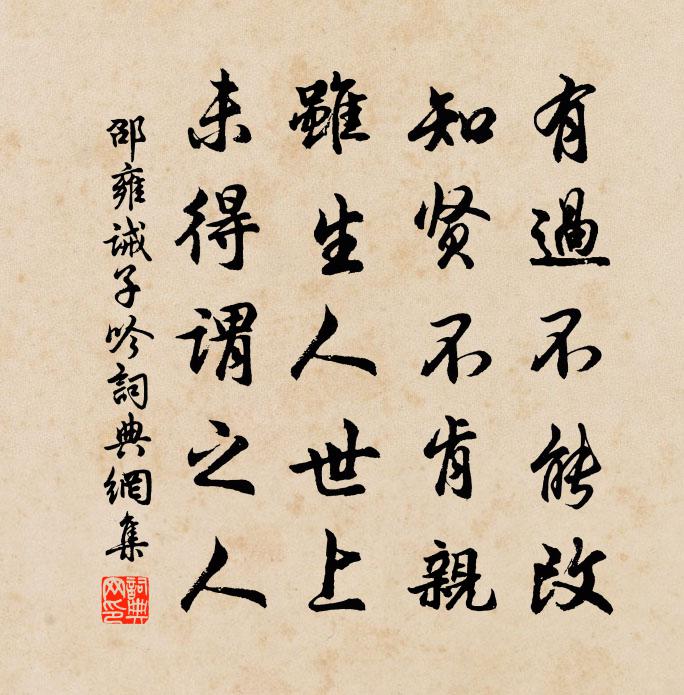 有過不能改
知贤不肯親
雖生人世上
未得謂之人
邵雍诫子吟詞典網集
詞典
网印